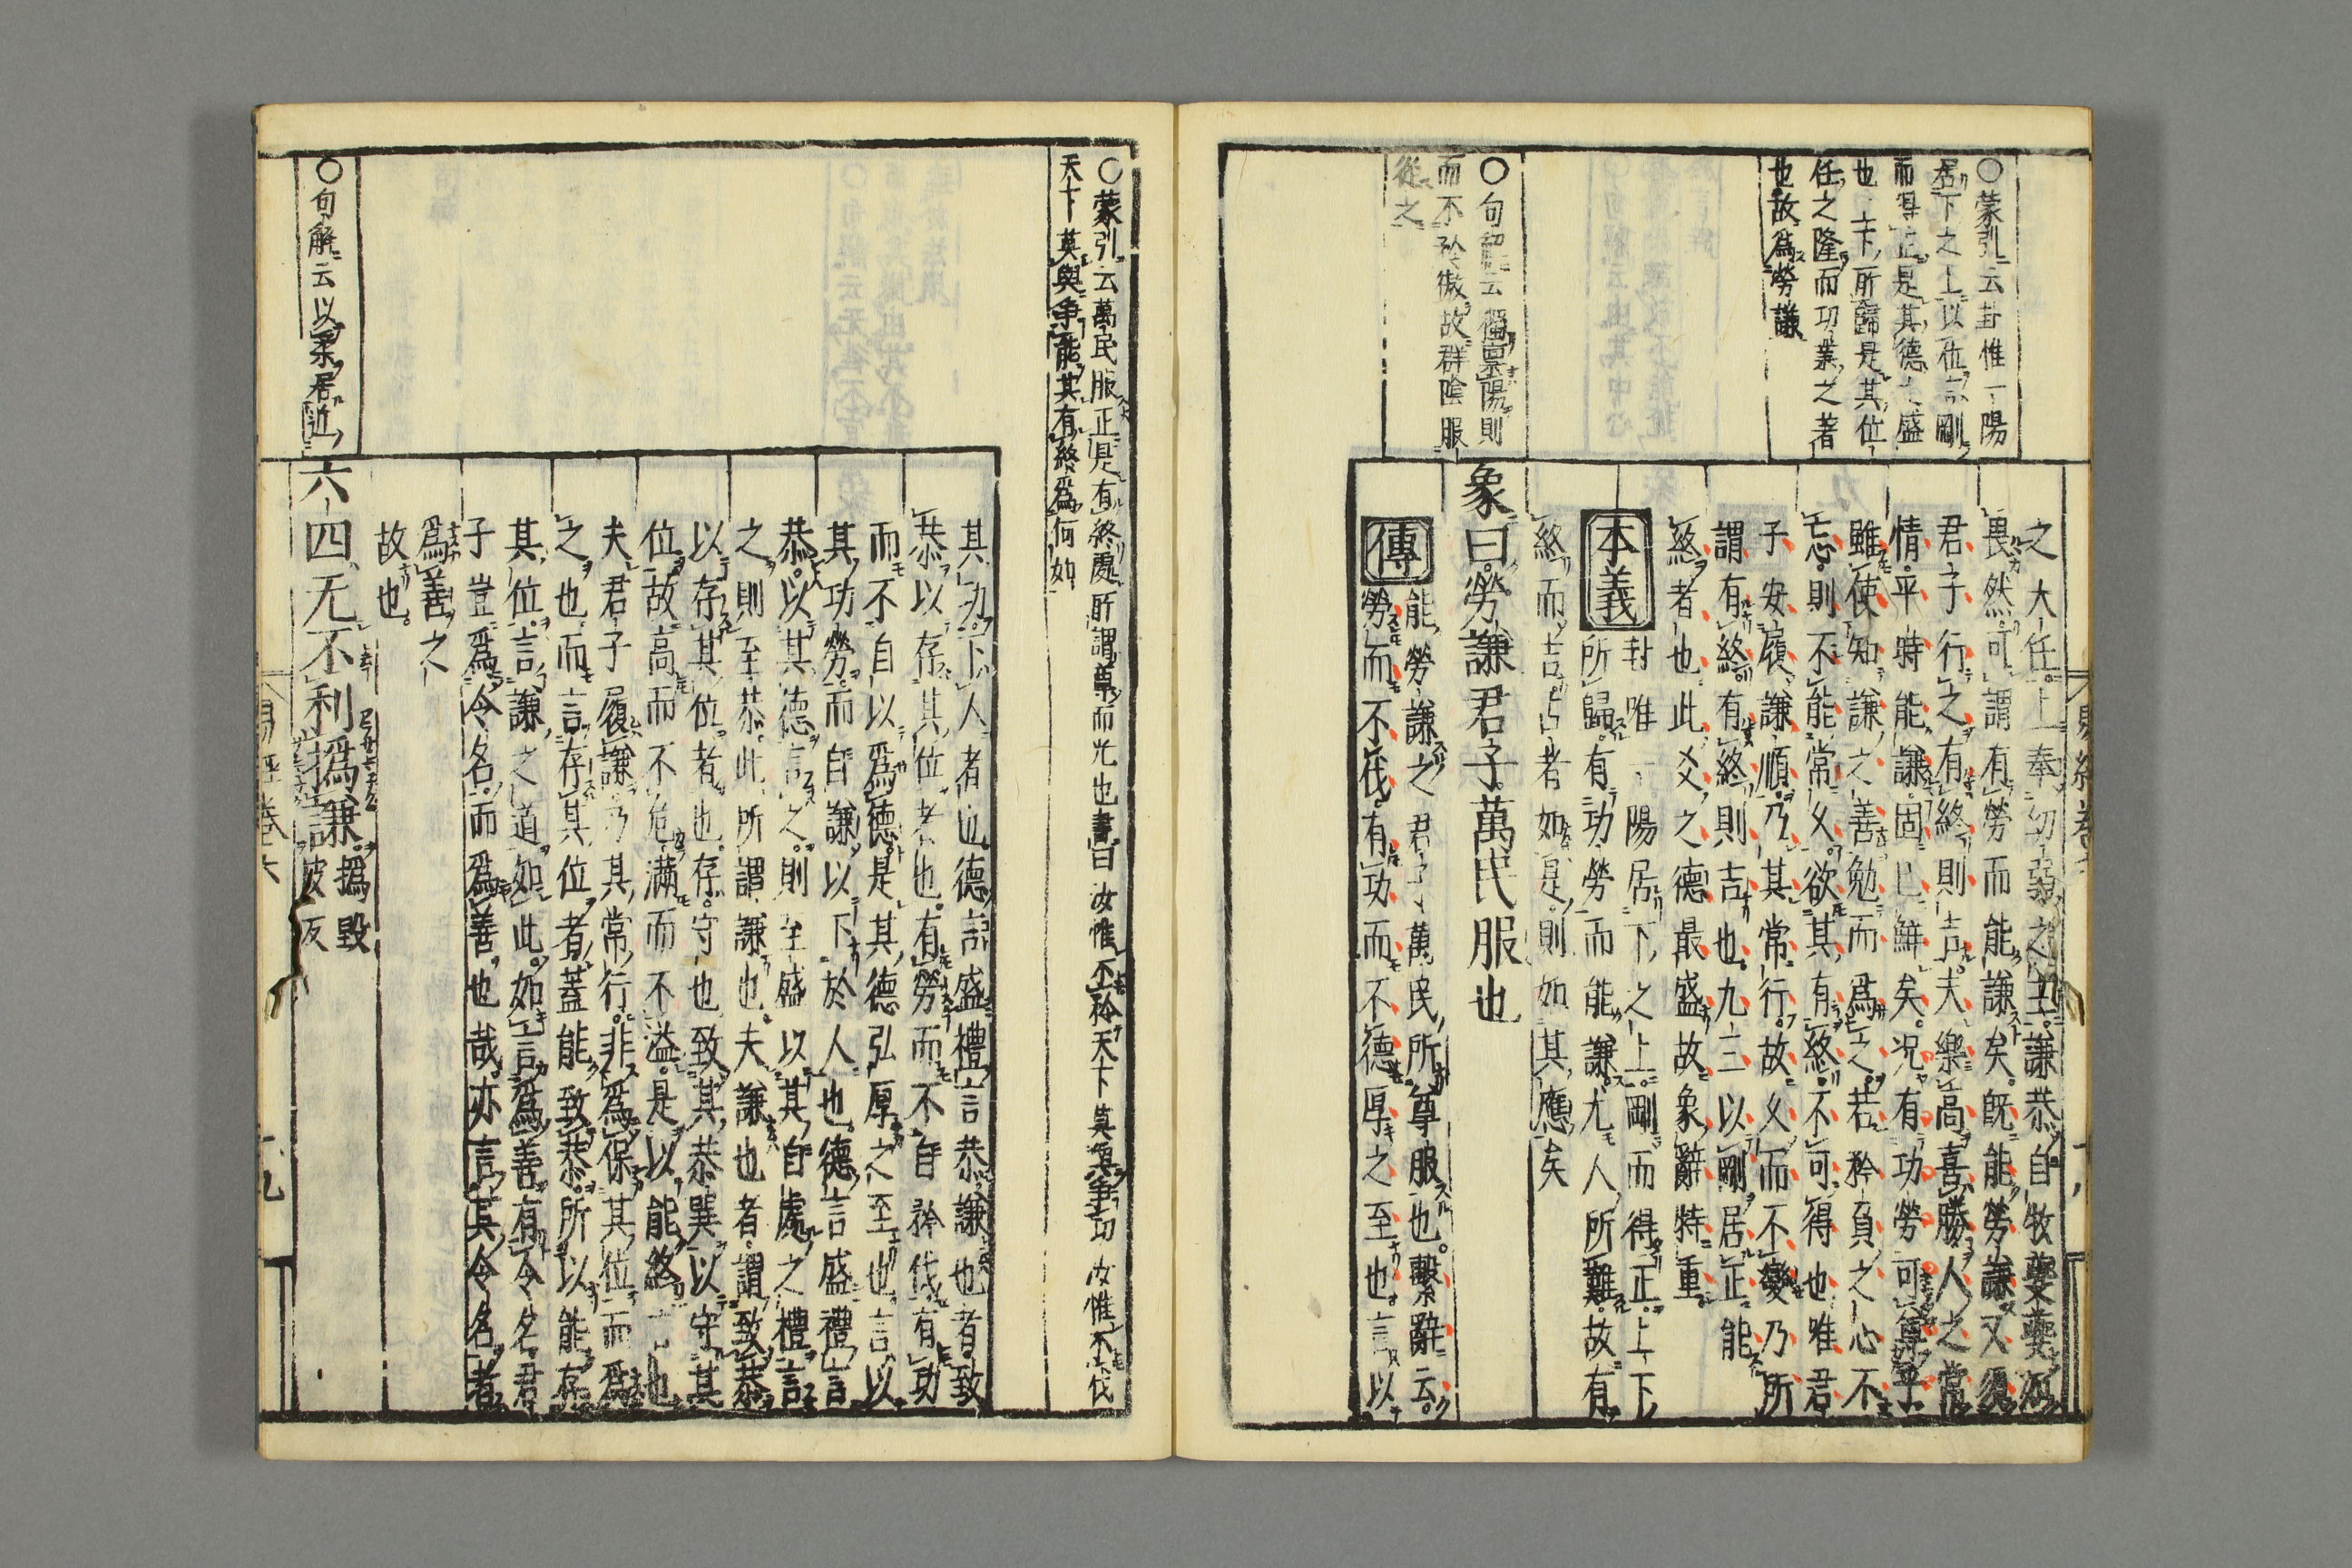 ○蒙引云卦惟一陽
居下之上以位言剛
而得正是其德之盛
也上下所歸是其位
任之隆而功業之著
也故爲勞謙
○句解云獨稟陽則
而不矜傲故群陰服
從之
之大任上奉幼弱之主謙恭自牧夔夔
畏然可謂有勞而能謙矣既能勞謙又須
君子行之有終則吉夫樂高喜勝人之常
情平時能謙固已鮮矣况有功勞可尊乎
雖使知謙之善勉而爲之若矜負之心不
忘則不能常久欲其有終不可得也唯君
子安履謙順乃其常行故久而不變乃所
謂有終有終則吉也九三以剛居正能
終者也此爻之德最盛故象辭特重
本義 卦唯一陽居下之上剛而得正上下
所歸有功勞而能謙尤人所難故有
終而吉占者如是則如其應矣
象曰勞謙君子萬民服也
傳 能勞謙之君子萬民所尊服也繫辭云
勞而不伐有功而不德厚之至也言以
○蒙引云萬民服正是有終處所謂尊而光也書曰汝惟不矜天下莫與爭功汝惟不伐
天下莫與爭能其有終爲何如
其功下人者也德言盛禮言恭謙也者致
恭以存其位者也有勞而不自矜伐有功
而不自以爲德是其德弘厚之至也言以
其功勞而自謙以下於人也德言盛禮言
恭以其德言之則至盛以其自處之禮言
之則至恭此所謂謙也夫謙也者謂致恭
以存其位者也存守也致其恭巽以守其
位故高而不危滿而不溢是以能終吉也
夫君子履謙乃其常行非爲保其位而爲
之也而言存其位者蓋能致恭所以能存
其位言謙之道如此如言爲善有令名君
子豈爲令名而爲善也哉亦言其令名者
爲善之
故也
○句解云以柔居近
六四无不利撝謙撝毀
皮反
易經卷六
十九